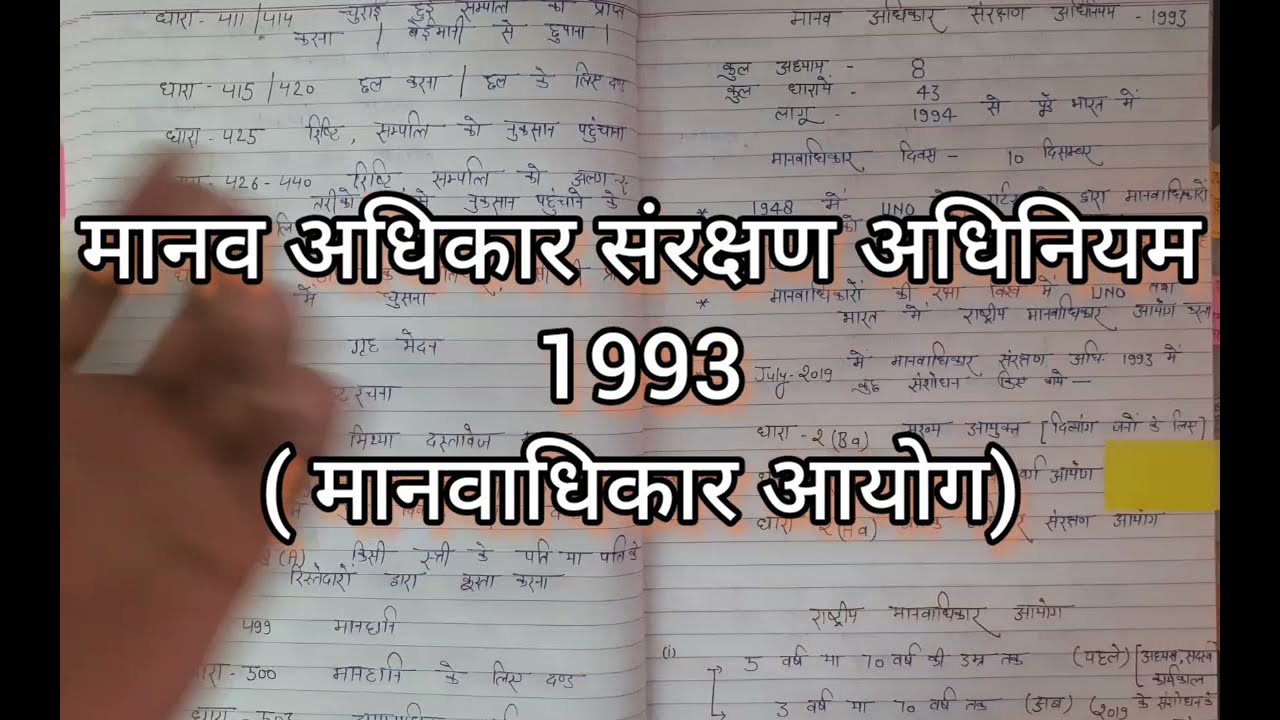 धारा - 411/414 चुराई हुई सम्पत्ति को प्राप्त
करना / बेईमानी से छुपाना।
धारा - 415/420 छल करना / छल के लिए दण्ड
धारा - 425 रिष्टि, सम्पत्ति को नुकसान पहुंचाना
426-440 रिष्टि सम्पत्ति को अलग-२
तरीको से नुकसान पहुंचाने के
में घुसना
गृह भेदन
रचना
मिथ्या दस्तावेज
(A) किसी स्त्री के पति या पति के
रिस्तेदारों द्वारा क्रूरता करना
499 मानहानि
धारा - 500 मानहानि के लिए दण्ड
धारा - 503
मानव अधिकार संरक्षण अधिनियम - 1993
कुल अध्याय - 8
कुल धारायें - 43
लागू - 1994 से पूरे भारत में
मानवाधिकार दिवस - 10 दिसम्बर
* 1948 में UNO द्वारा मानवाधिकारों
को
* मानवाधिकारों की रक्षा विश्व में UNO तथा
भारत में राष्ट्रीय मानवाधिकार आयोग करता
July-2019 में मानवाधिकार संरक्षण अधि. 1993 में
कुछ संशोधन किए गये —
धारा - २ (Ba) मुख्य आयुक्त [दिव्यांग जनों के लिए]
वर्ग आयोग
धारा २ (Ha) संरक्षण आयोग
राष्ट्रीय मानवाधिकार आयोग
(i) 5 वर्ष या 70 वर्ष की उम्र तक (पहले) [अध्यक्ष, सदस्य
कार्यकाल
3 वर्ष या 70 वर्ष तक (अब) (2019 के संशोधन के
मानव अधिकार संरक्षण अधिनियम
1993
( मानवाधिकार आयोग)